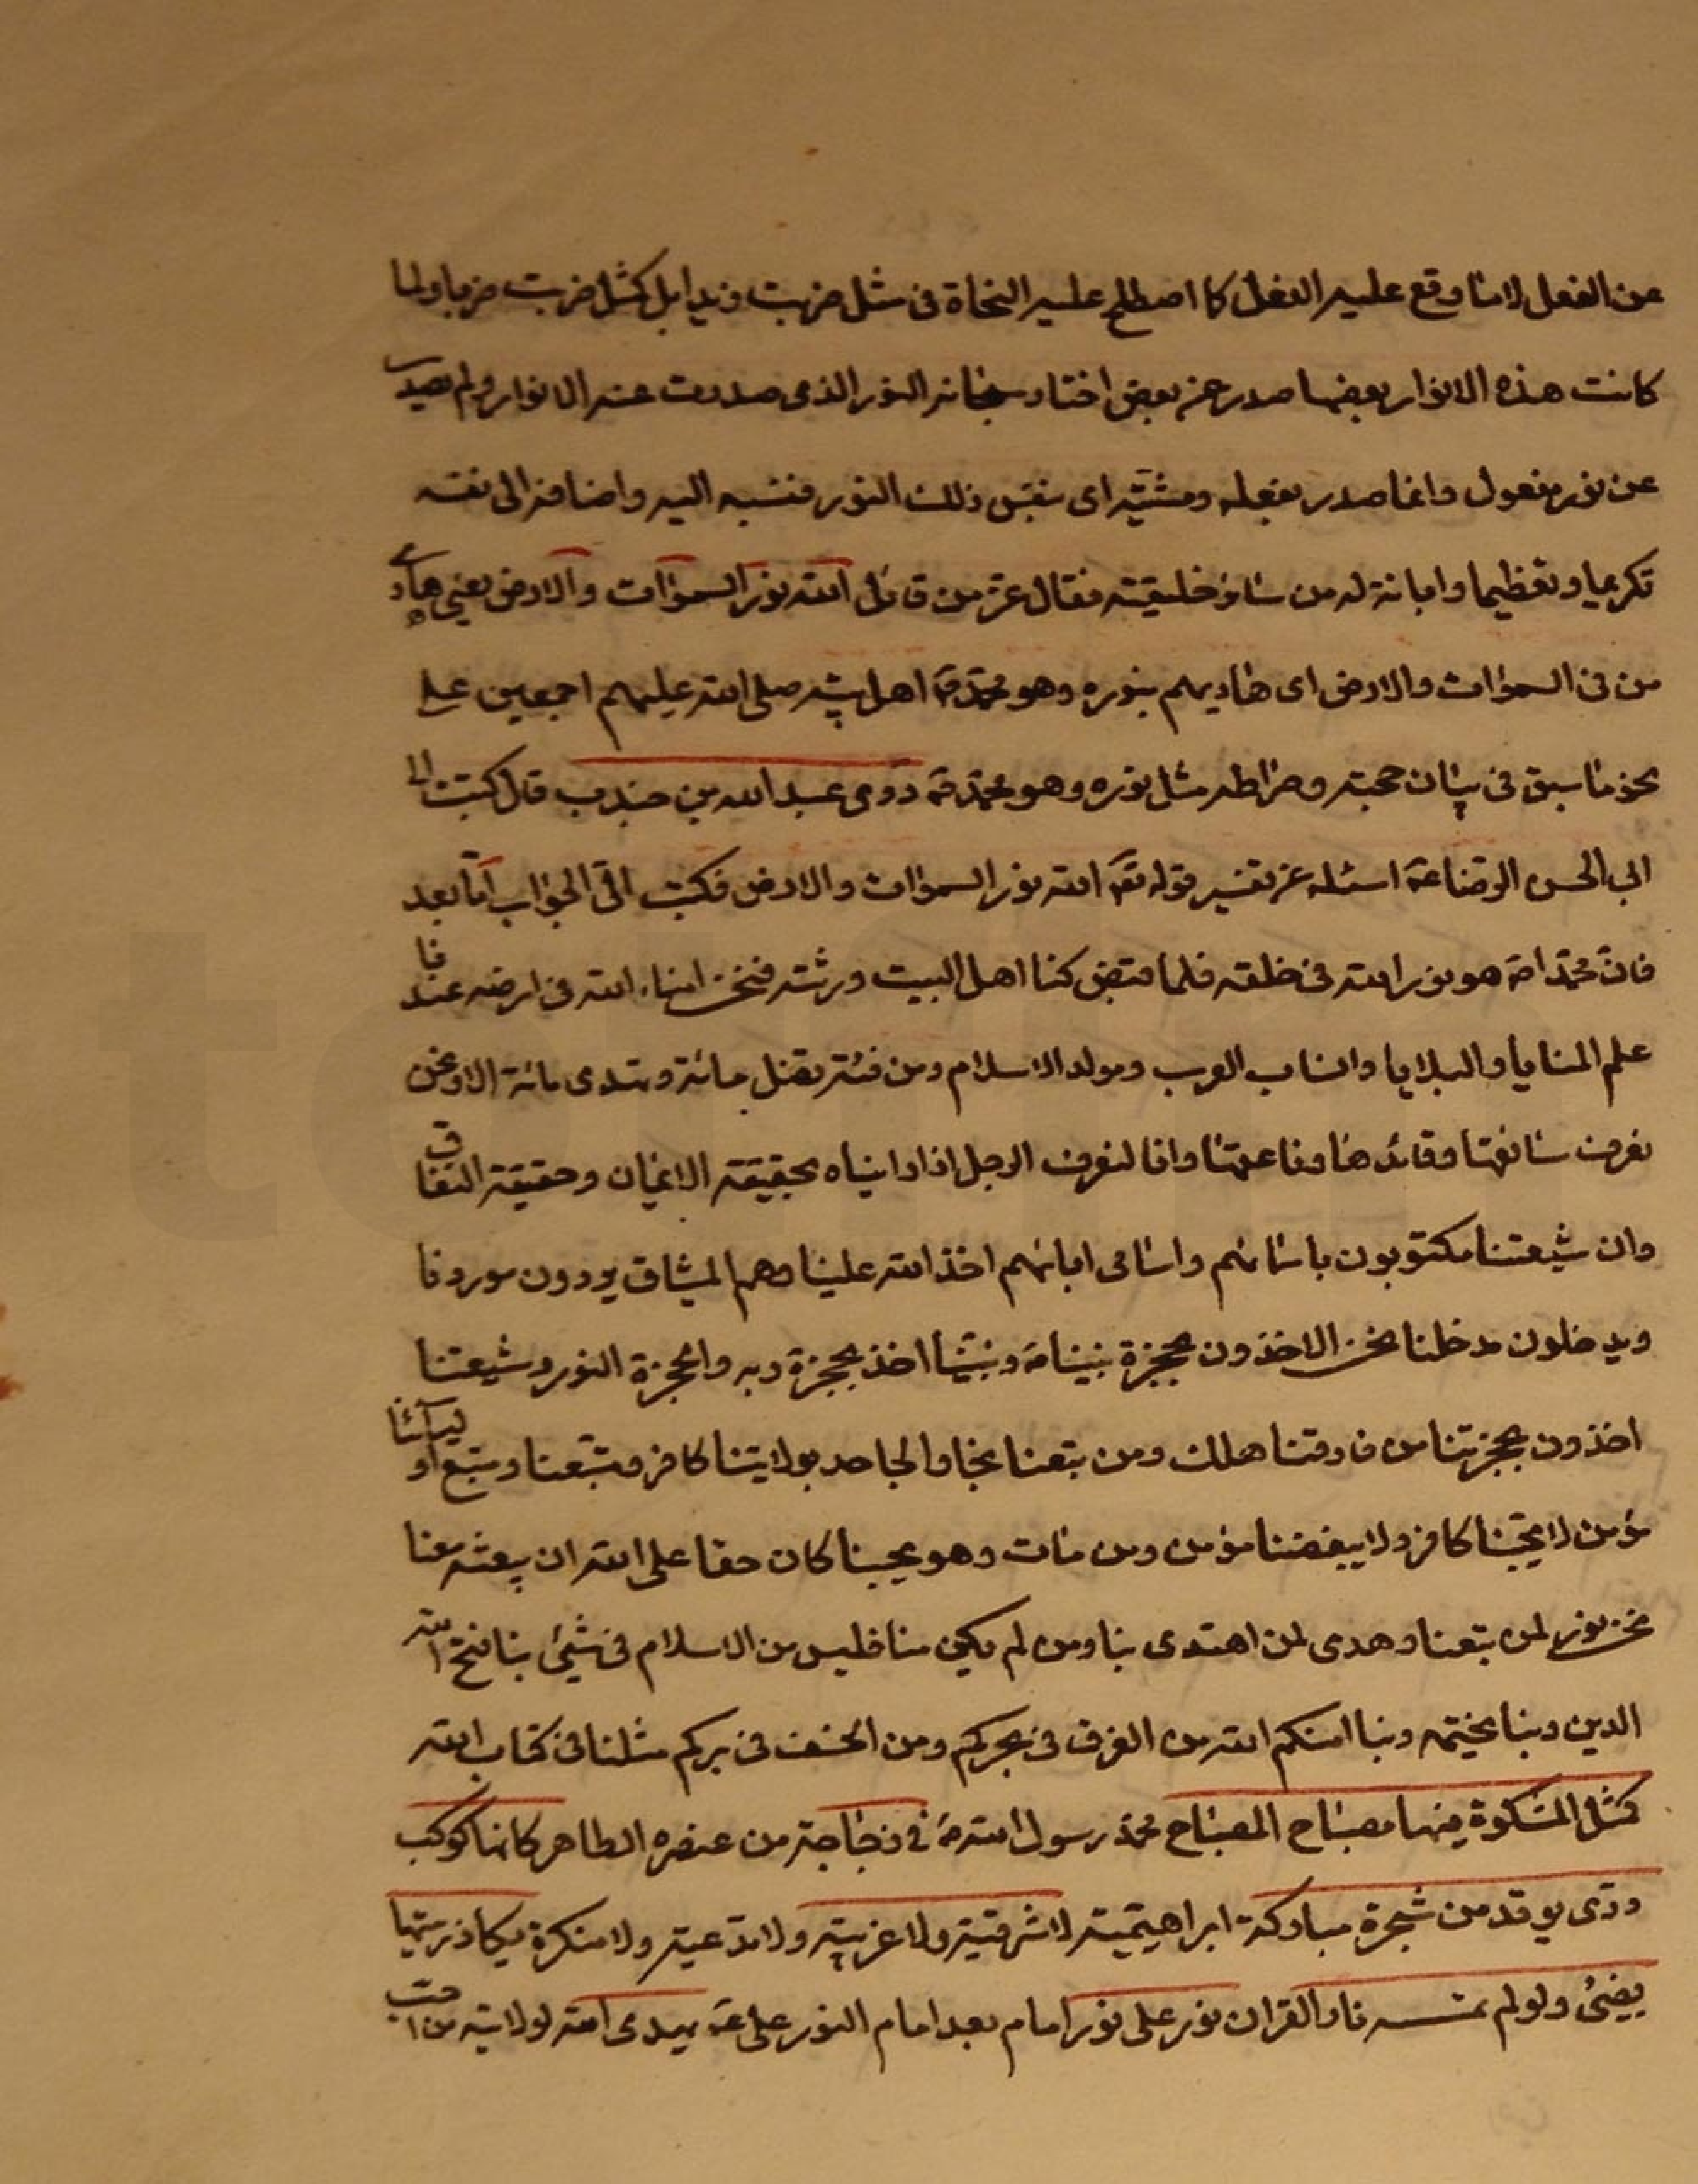 عن الفعل لا ما وقع عليه الفعل كما اصطلح عليه النحاة فى مثل ضربت زيدا بل كمثل ضربت ضربا ولما
كانت هذه الانوار بعضها صدر عن بعض اختار سبحانه النور الذى صدرت عنه الانوار ولم يصدر
عن نور مفعول وانما صدر بفعله ومشيّته اى بنفس ذلك النور فنسبه اليه واضافه الى نفسه
تكريما وتعظيما وابانة له من سائر خليقته فقال عز من قائل الله نور السموات والارض يعنى هادى
من فى السموات والارض اى هاديهم بنوره وهو محمد ص اهل بيته صلى الله عليهم اجمعين على
نحو ما سبق فى بيان حجبته وصراطه مثل نوره وهو محمد ص روى عبد الله بن جندب قال كتبت الى
ابى الحسن الرضا ع اسئله عن تفسير قوله تع الله نور السموات والارض فكتب الىّ الجواب امّا بعد
فانّ محمّدا ص هو نور الله فى خلقه فلما قبض كنا اهل البيت ورثته فنحن امناء الله فى ارضه عندنا
علم المنايا والبلايا وانساب العرب ومولد الاسلام ومن فئة تضل مائة وتهدى مائة الا ونحن
نعرف سائقها وقائدها وناعقها وانا لنعرف الرجل اذا رايناه بحقيقة الايمان وحقيقة النفاق
وان شيعتنا مكتوبون باسمائهم واسامى ابائهم اخذ الله علينا وهم الميثاق يردون موردنا
ويدخلون مدخلنا نحن الاخذون بحجزة نبينا ص ونبيّنا اخذ بحجزة ربه والحجزة النور وشيعتنا
اخذون بحجزتنا من فارقنا هلك ومن تبعنا نجا والجاحد بولايتنا كافر ومتبعنا ومتبع اوليائنا
مؤمن لا يحبّنا كافر ولا يبغضنا مؤمن ومن مات وهو يحبنا كان حقا على الله ان يبعثه معنا
نحن نور لمن تبعنا وهدى لمن اهتدى بنا ومن لم يكن منا فليس من الاسلام فى شيئ بنا فتح الله
الدين وبنا يختمه وبنا امنكم الله من الغرق فى بحركم ومن الخسف فى بركم مثلنا فى كتاب الله
كمثل المشكوة فيها مصباح المصباح محمد رسول الله ص فى زجاجة من عنصره الطاهر كانها كوكب
درّى يوقد من شجرة مباركة ابراهيميّة لا شرقية ولا غربية ولا دّعية ولا منكرة يكاد زيتها
يضئ ولو لم تمسسه نار القران نور على نور امام بعد امام النور على ع يهدى الله لولايته من احب